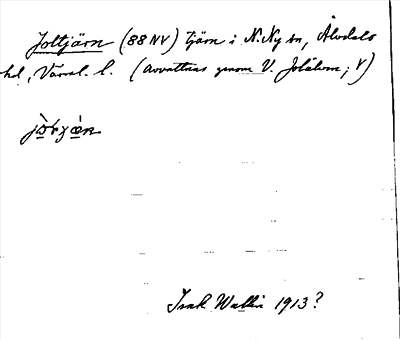 Joltjärn (88 NV) tjärn i N. Ny sn, Älvdals
hd, Värml. l. (avvattnas genom V. Jolälven; V)
Isak Wallin 1913?